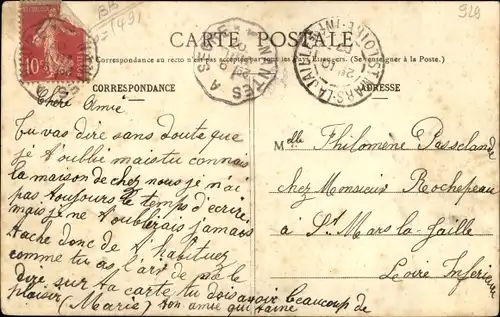 928
BB
=149
10c
CARTE POSTALE
NANTES A SEGRÉ
ST MARS-LA-JAILLE
LOIRE-INFRE
Correspondance au recto n'est pas acceptée par tous les Pays Étrangers. (Se renseigner à la Poste.)
CORRESPONDANCE
ADRESSE
Chère Amie
Tu vas dire sans doute que
je t'oublie mais tu connais
la maison de chez nous je n'ai
pas toujours le temps d'écrire,
mais je ne t'oublierais jamais
tache donc de t'habituez
comme tu as l'air de me le
dire sur ta carte tu dois avoir beaucoup de
plaisir (Marie) ton amie qui t'aime
Melle Philomène Passeland
chez Monsieur Rochepeau
à St Mars la-Jaille
Loire Inférieure